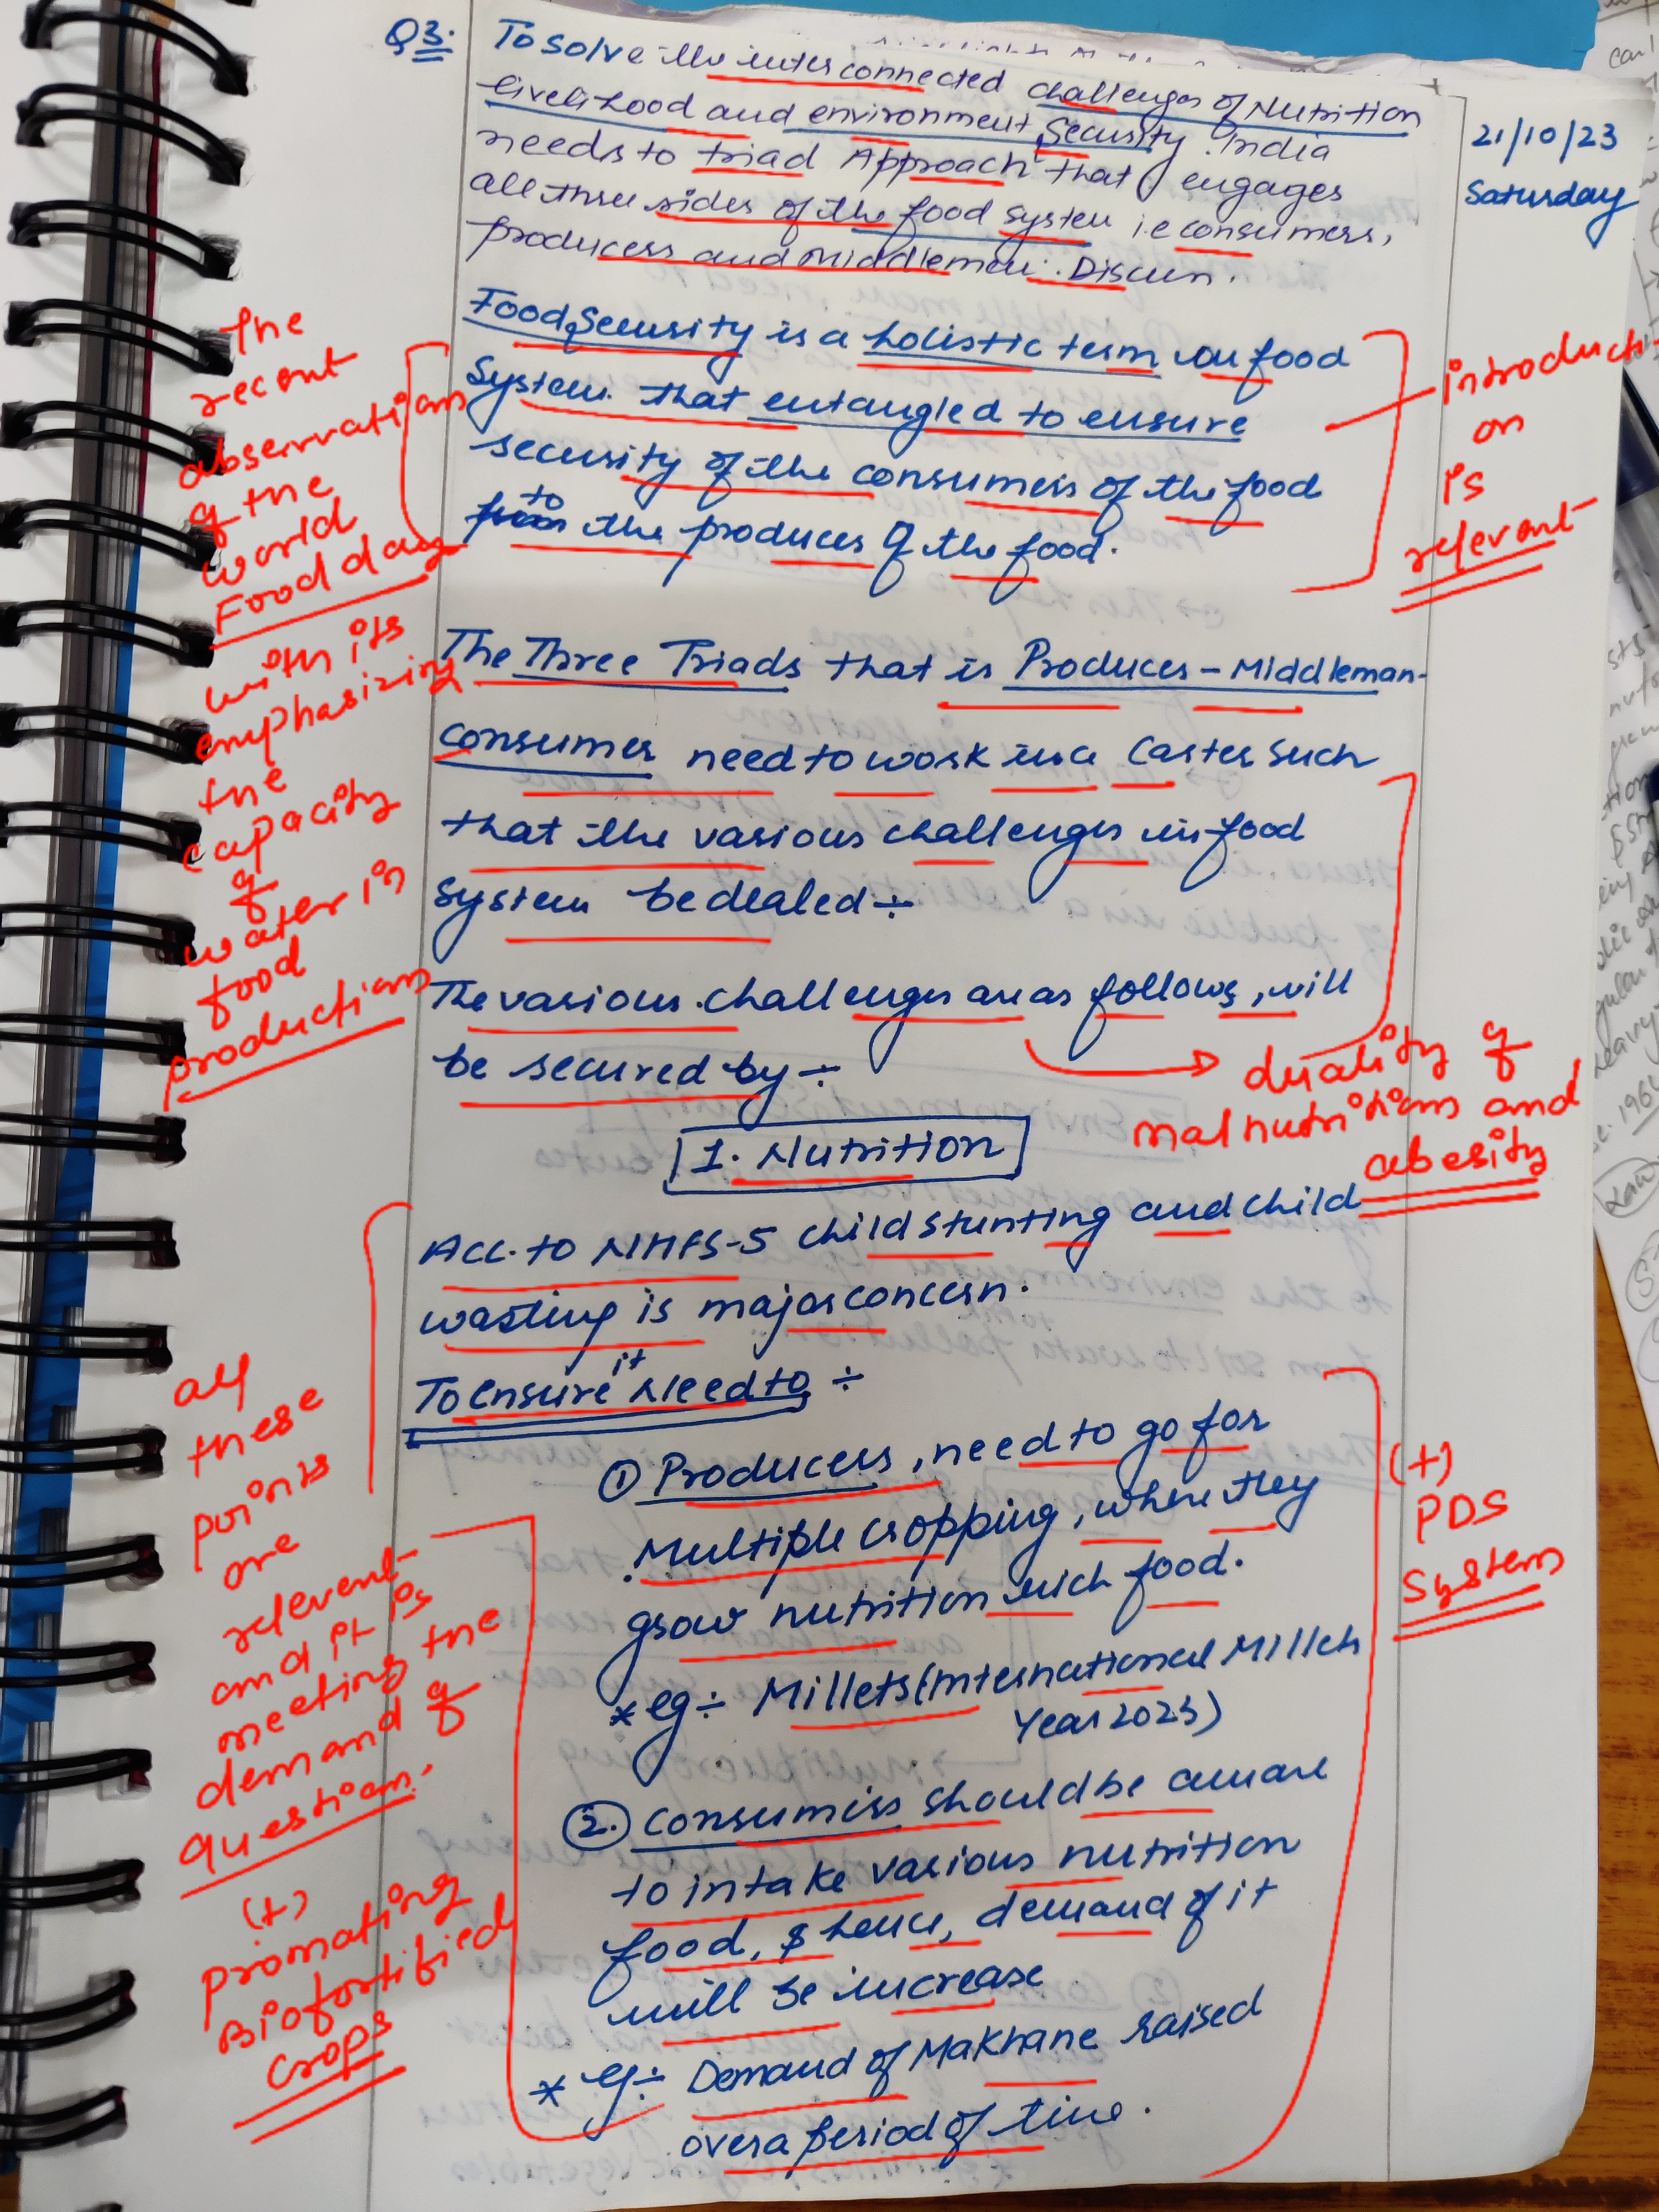 Q3. To solve the interconnected challenges of Nutrition
livelihood and environment security. India
needs to triad Approach that engages
all three sides of the food system i.e consumers,
producers and Middlemen. Discuss.
21/10/23
Saturday
Food Security is a holistic term on food
System that entangled to ensure
security of the consumers of the food
to the producers of the food.
introducti
on
is
relevant
The
recent
observation
of the
world
Food day
with its
emphasizing
the
capacity
of
water in
food
productions
The Three Triads that is Produces - Middleman-
consumer need to work in a Caster such
that the various challenges in food
system be dealed ÷
The various challenges are as follows, will
be secured by ÷
duality of
malnutritions and
obesity
1. Nutrition
Acc. to NHFS-5 child stunting and child
wasting is major concern.
To ensure it Need to ÷
① Producers, need to go for
Multiple cropping, where they
grow nutrition rich food.
* eg ÷ Millets (International Millets
Year 2023)
② Consumers should be aware
to intake various nutrition
food, & hence, demand of it
will be increase
* eg ÷ Demand of Makhane raised
over a period of time.
all
these
points
are
relevent
and it is
meeting the
demand of
question.
(+)
promoting
Biofortified
crops
(+)
PDS
System